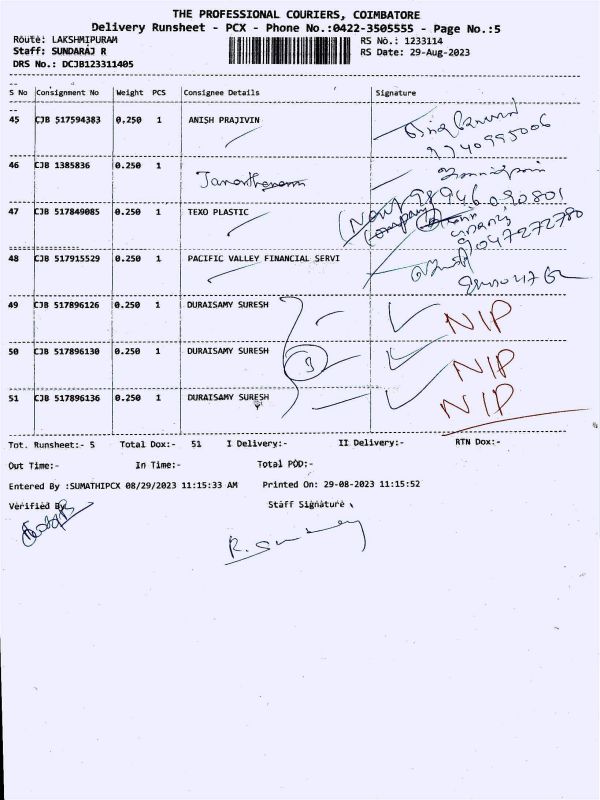 THE PROFESSIONAL COURIERS, COIMBATORE
Delivery Runsheet - PCX - Phone No.:0422-3505555 - Page No.:5
Route: LAKSHMIPURAM RS No.: 1233114
Staff: SUNDARAJ R RS Date: 29-Aug-2023
DRS No.: DCJB123311405
S No Consignment No Weight PCS Consignee Details Signature
45 CJB 517594383 0.250 1 ANISH PRAJIVIN
9740995006
46 CJB 1385836 0.250 1
47 CJB 517849085 0.250 1 TEXO PLASTIC
9047272780
48 CJB 517915529 0.250 1 PACIFIC VALLEY FINANCIAL SERVI
49 CJB 517896126 0.250 1 DURAISAMY SURESH NIP
50 CJB 517896130 0.250 1 DURAISAMY SURESH 3 NIP
51 CJB 517896136 0.250 1 DURAISAMY SURESH NIP
Tot. Runsheet:- 5 Total Dox:- 51 I Delivery:- II Delivery:- RTN Dox:-
Out Time:- In Time:- Total POD:-
Entered By :SUMATHIPCX 08/29/2023 11:15:33 AM Printed On: 29-08-2023 11:15:52
Verified By Staff Signature